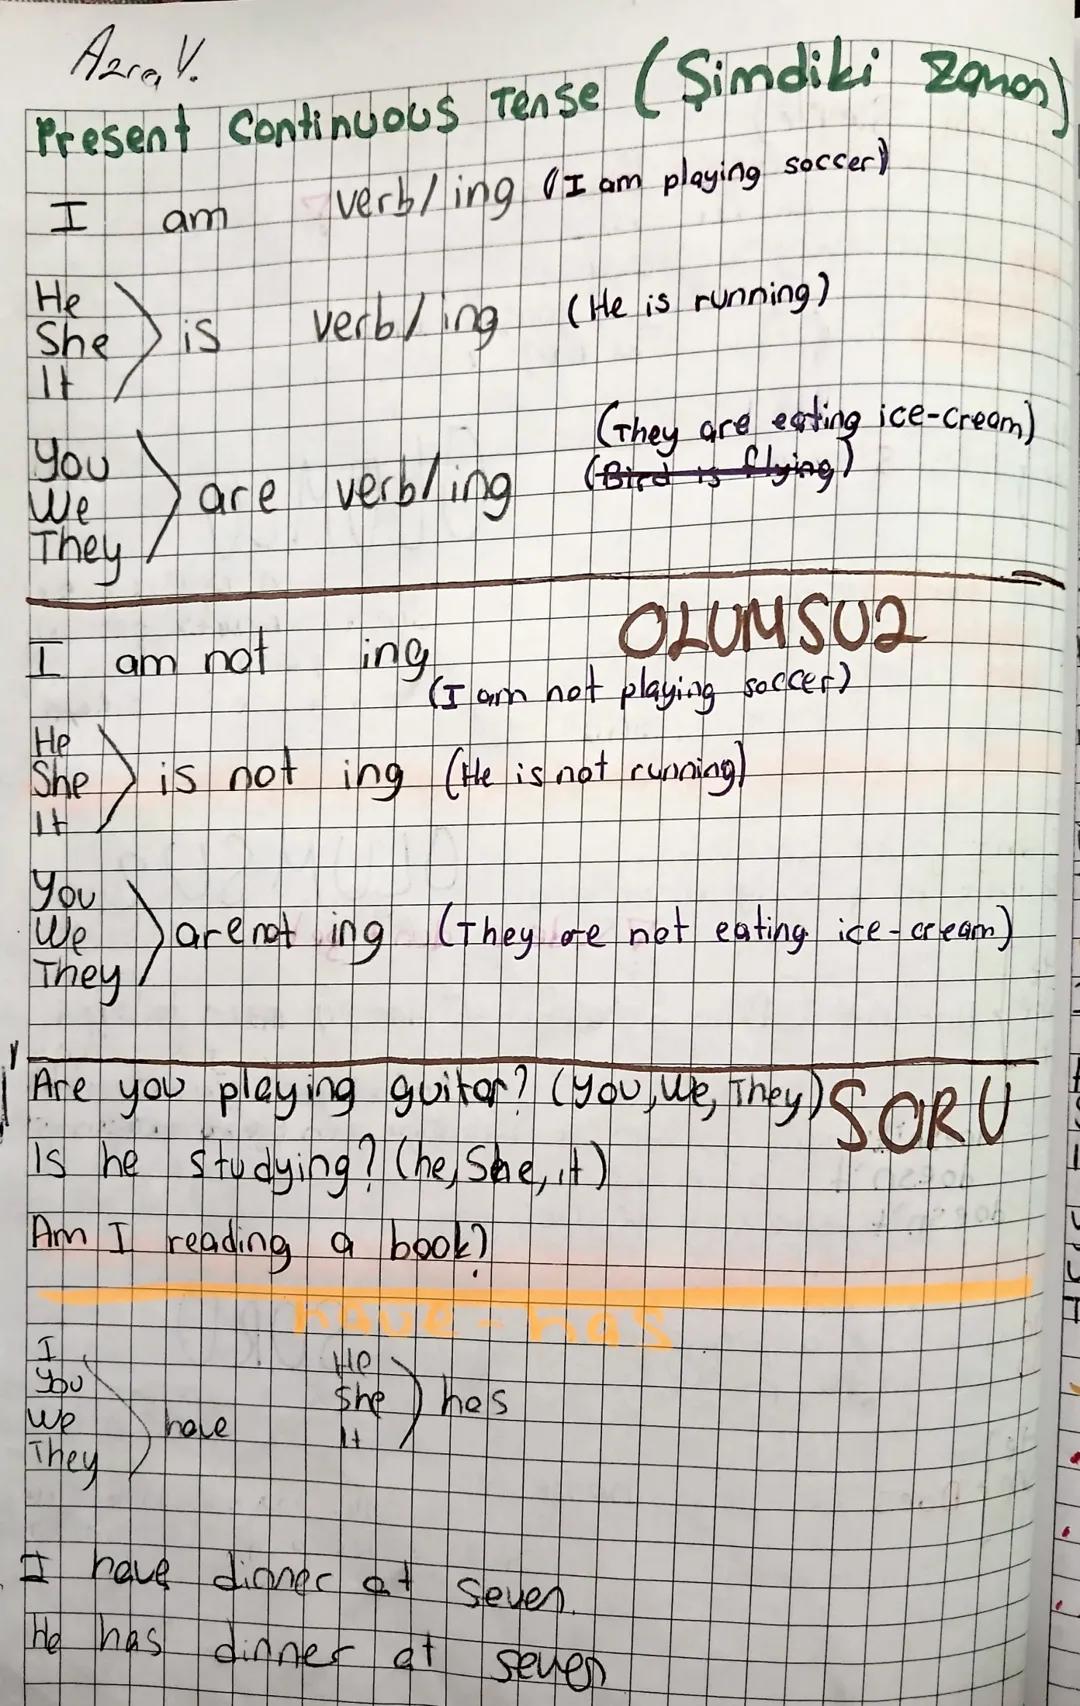 Azra V.
Present Continuous Tense (Şimdiki Zaman)
I am verb/ing (I am playing soccer)
He
She is verb/ing (He is running)
It
(They are eating ice-cream)
(Bird is flying)
You
We are verb/ing
They
OLUMSUZ
I am not ing
(I am not playing soccer)
He
She is not ing (He is not running)
It
You
We are not ing (They are not eating ice-cream)
They
Are you playing guitar? (you, we, They) SORU
Is he studying? (he, She, it)
Am I reading a book?
have-has
I
You
We have
They
He
She has
It
I have dinner at seven.
He has dinner at seven